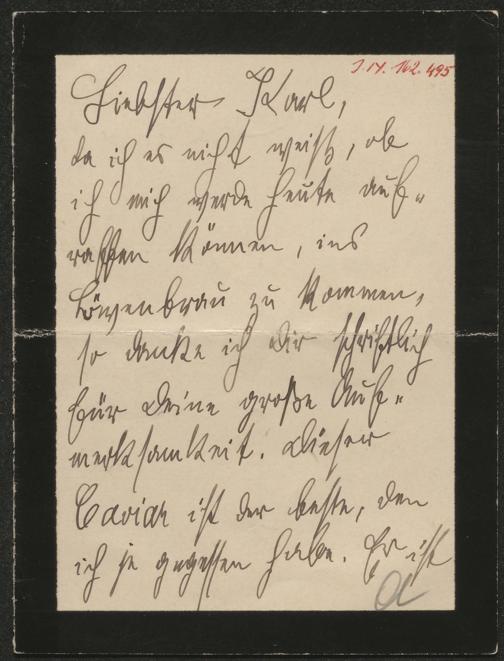 I.N. 162.495
Liebster Karl,
da ich es nicht weiß, ob
ich mich werde heute auf-
raffen können, ins
Löwenbräu zu kommen,
so danke ich Dir schriftlich
für Deine große Auf-
merksamkeit. Dieser
Caviar ist der beste, den
ich je gegessen habe. Er ist
a